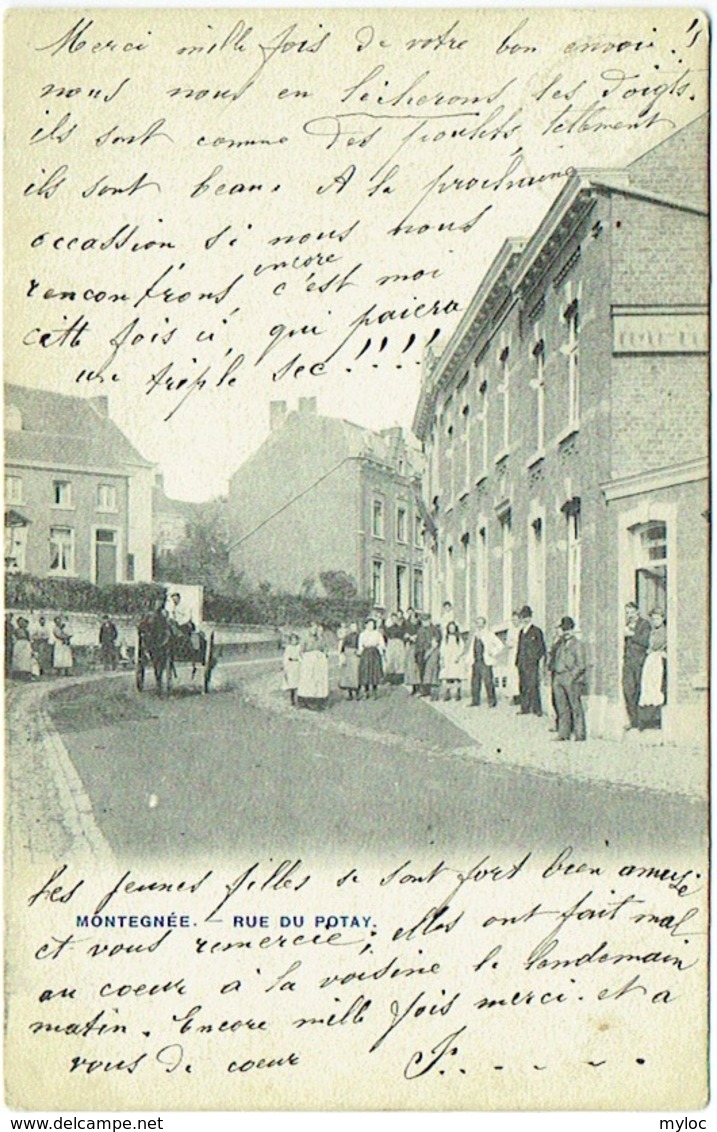 Merci mille fois de votre bon envoi!!
nous nous en lècherons les doigts.
ils sont comme des poulets, tellement
ils sont beaux. A la prochaine
occassion si nous nous
rencontrons encore, c'est moi
cette fois ci, qui paiera
un triple sec!!!!
Les jeunes filles se sont fort bien amusé
MONTEGNÉE. — RUE DU POTAY.
et vous remercie; elles ont fait mal
au coeur à la voisine le lendemain
matin. Encore mille fois merci. et a
vous de coeur J. . . . .
delcampe.net
myloc